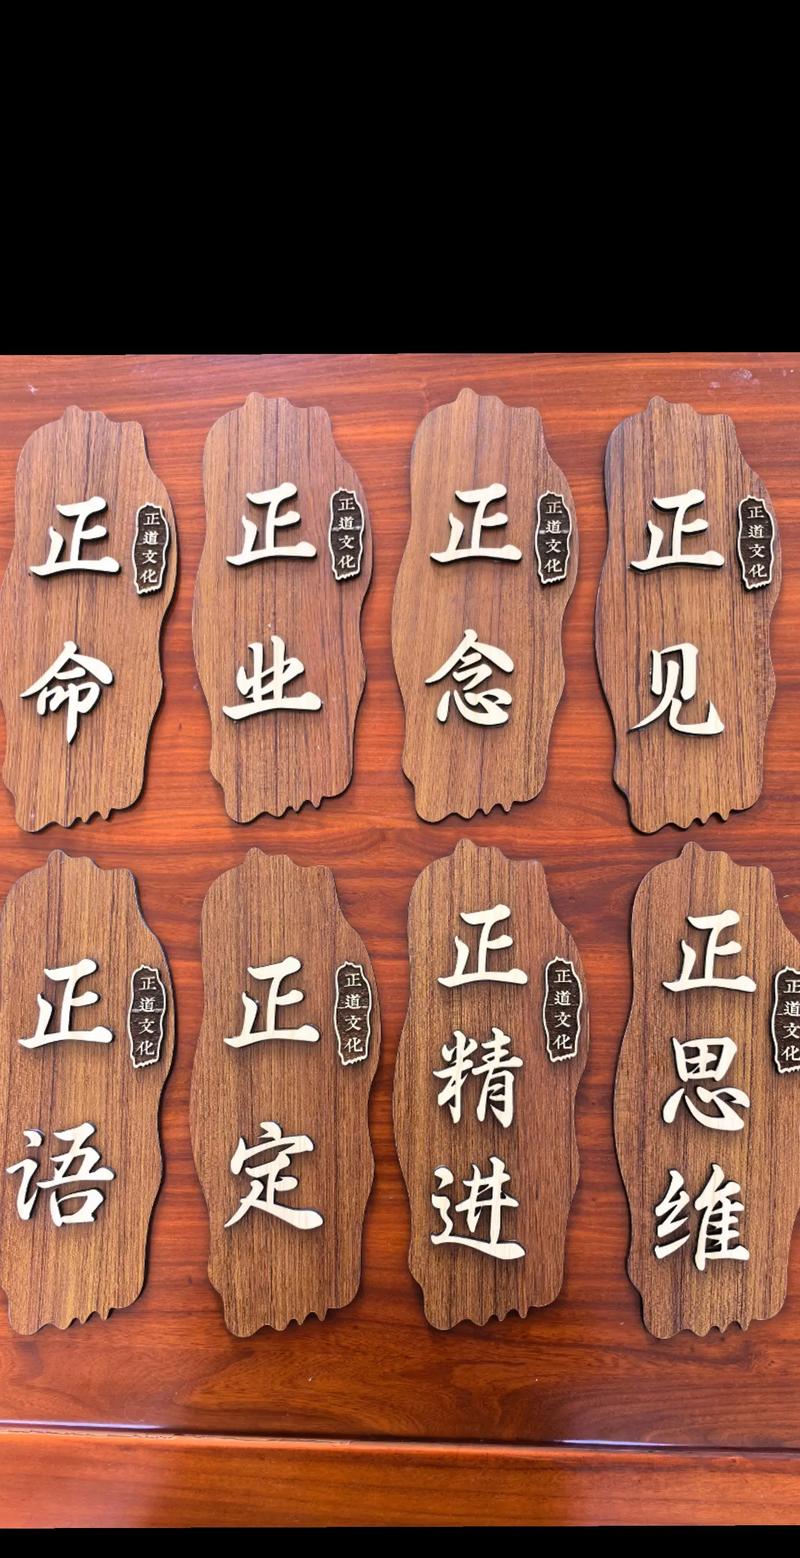 正命
正道文化
正业
正道文化
正念
正道文化
正见
正道文化
正语
正道文化
正定
正道文化
正精进
正道文化
正思维
正道文化